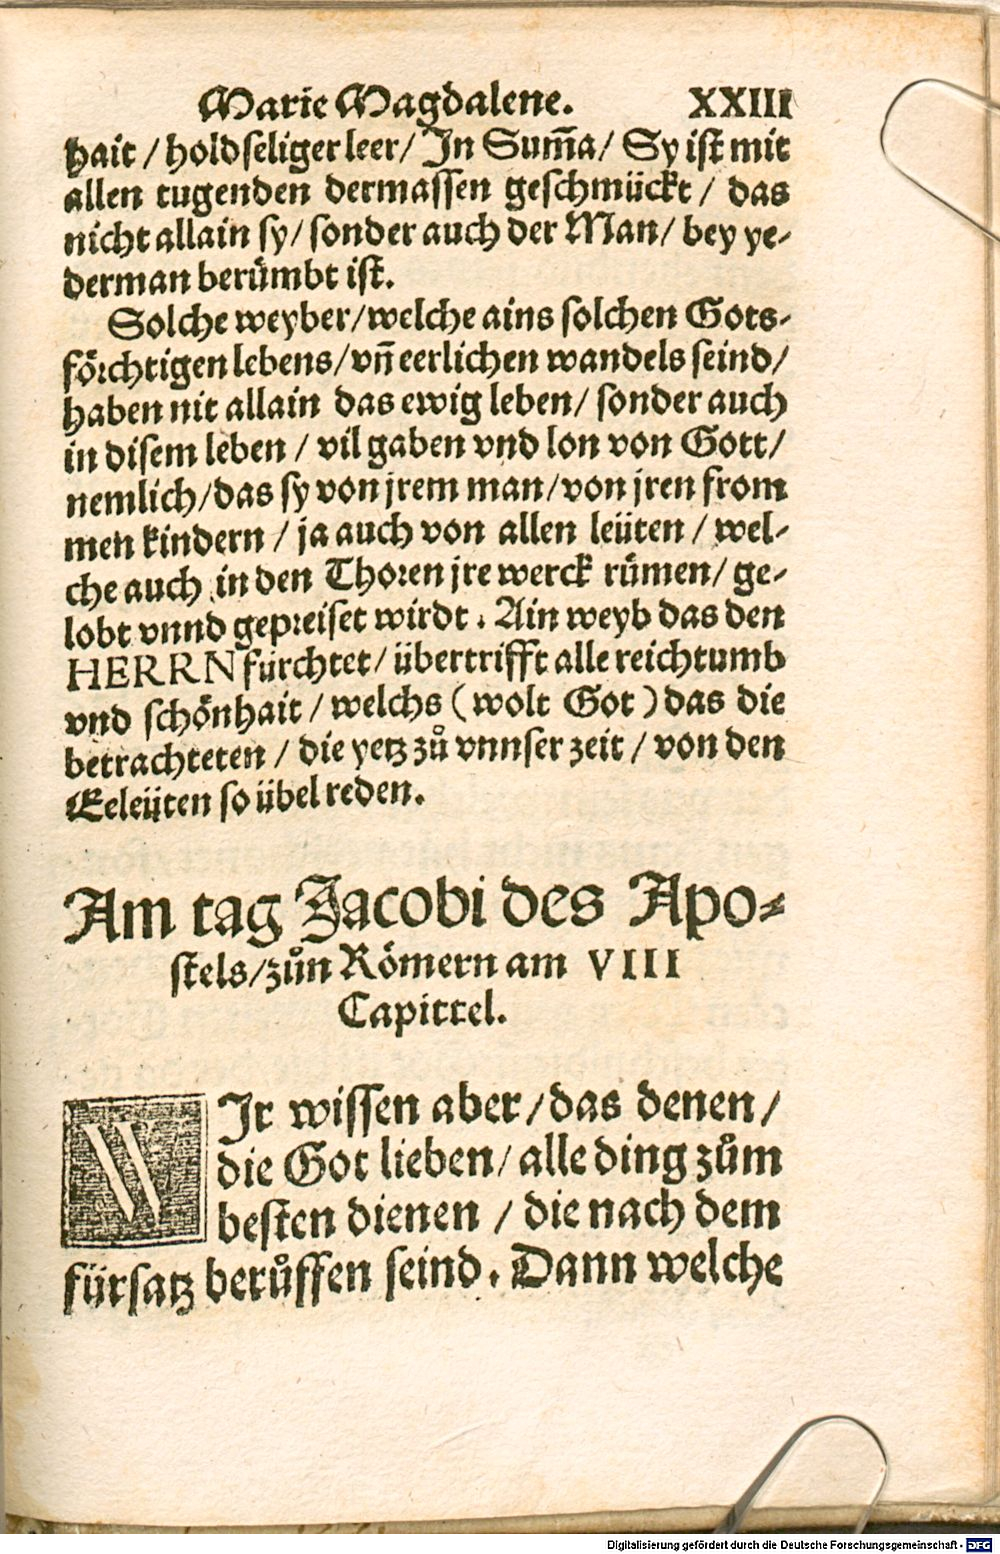 Marie Magdalene. XXIII
hait / holdseliger leer / In Sum̃a / Sy ist mit
allen tugenden dermassen geschmückt / das
nicht allain sy / sonder auch der Man / bey ye-
derman berümbt ist.
Solche weyber / welche ains solchen Gots-
förchtigen lebens / vñ eerlichen wandels seind /
haben nit allain das ewig leben / sonder auch
in disem leben / vil gaben vnd lon von Gott /
nemlich / das sy von jrem man / von jren from
men kindern / ja auch von allen leüten / wel-
che auch in den Thoren jre werck rümen / ge-
lobt vnnd gepreiset wirdt. Ain weyb das den
HERRN fürchtet / übertrifft alle reichtumb
vnd schönhait / welchs (wolt Got) das die
betrachteten / die yetz zů vnnser zeit / von den
Eeleüten so übel reden.
Am tag Jacobi des Apo-
stels / zůn Römern am VIII
Capittel.
WIr wissen aber / das denen /
die Got lieben / alle ding zům
besten dienen / die nach dem
fürsatz berůffen seind. Dann welche
Digitalisierung gefördert durch die Deutsche Forschungsgemeinschaft - DFG